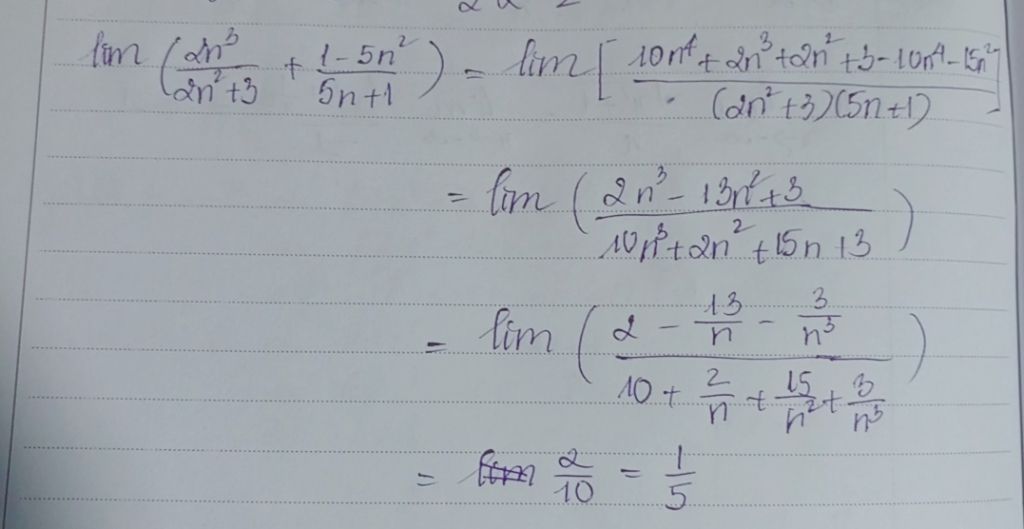 lim (2n³/(2n²+3) + (1-5n²)/(5n+1)) = lim [(10n⁴+2n³+2n²+3-10n⁴-15n²)/((2n²+3)(5n+1))]
= lim ((2n³-13n²+3)/(10n³+2n²+15n+3))
= lim ((2 - 13/n - 3/n³)/(10 + 2/n + 15/n² + 3/n³))
= 2/10 = 1/5